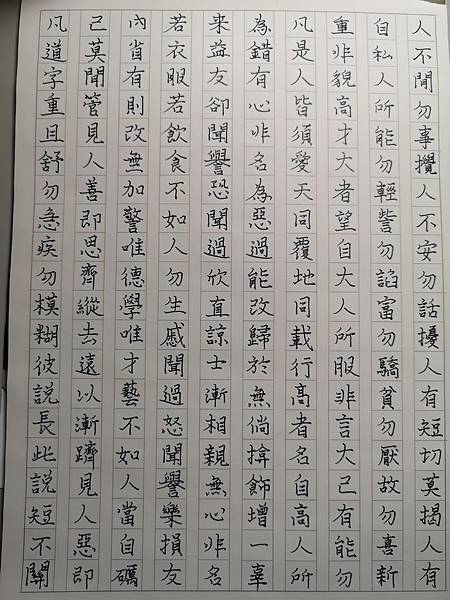 人不閒勿事攪人不安勿話擾人有短切莫揭人有
自私人所能勿輕訾勿諂富勿驕貧勿厭故勿喜新
重非貌高才大者望自大人所服非言大己有能勿
凡是人皆須愛天同覆地同載行高者名自高人所
為錯有心非名為惡過能改歸於無倘揜飾增一辜
來益友卻聞譽恐聞過欣直諒士漸相親無心非名
若衣服若飲食不如人勿生慼聞過怒聞譽樂損友
內省有則改無加警唯德學唯才藝不如人當自礪
己莫閒管見人善即思齊縱去遠以漸躋見人惡即
凡道字重且舒勿急疾勿模糊彼說長此說短不關